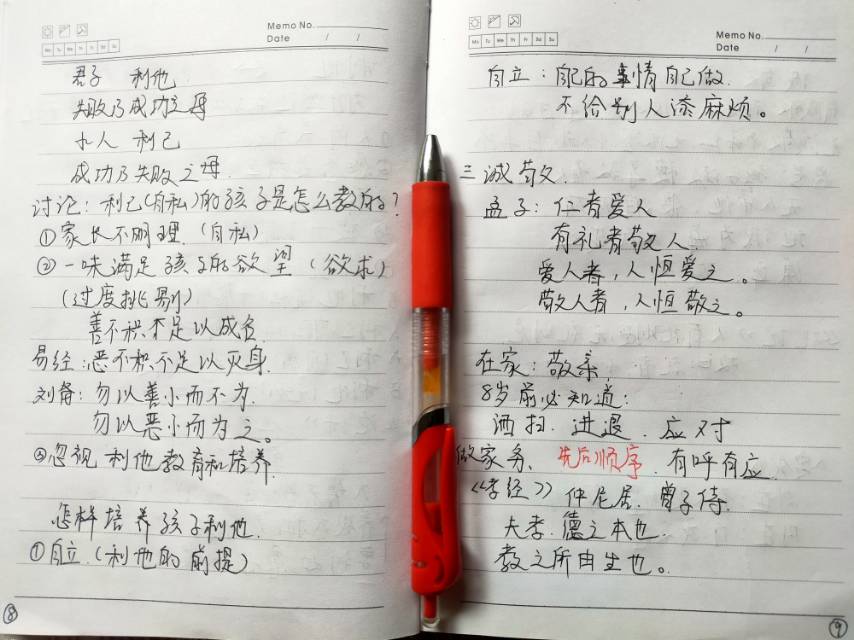 Memo No.
Mo Tu We Th Fr Sa Su
Date / /
君子 利他
失败乃成功之母
小人 利己
成功乃失败之母
讨论：利己(自私)的孩子是怎么教的？
①家长不明理.(自私)
②一味满足孩子的欲望(欲求)
(过度挑剔)
善不积不足以成名
易经：恶不积不足以灭身.
刘备：勿以善小而不为.
勿以恶小而为之。
③忽视利他教育和培养
怎样培养孩子利他.
①自立.(利他的前提)
⑧
Memo No.
Mo Tu We Th Fr Sa Su
Date / /
自立：自己的事情自己做.
不给别人添麻烦。
三 诚敬.
孟子：仁者爱人
有礼者敬人.
爱人者，人恒爱之。
敬人者，人恒敬之。
在家：敬亲
8岁前必知道：
洒扫.进退.应对
做家务、先后顺序.有呼有应.
《孝经》仲尼居.曾子侍.
夫孝.德之本也.
教之所由生也。
⑨